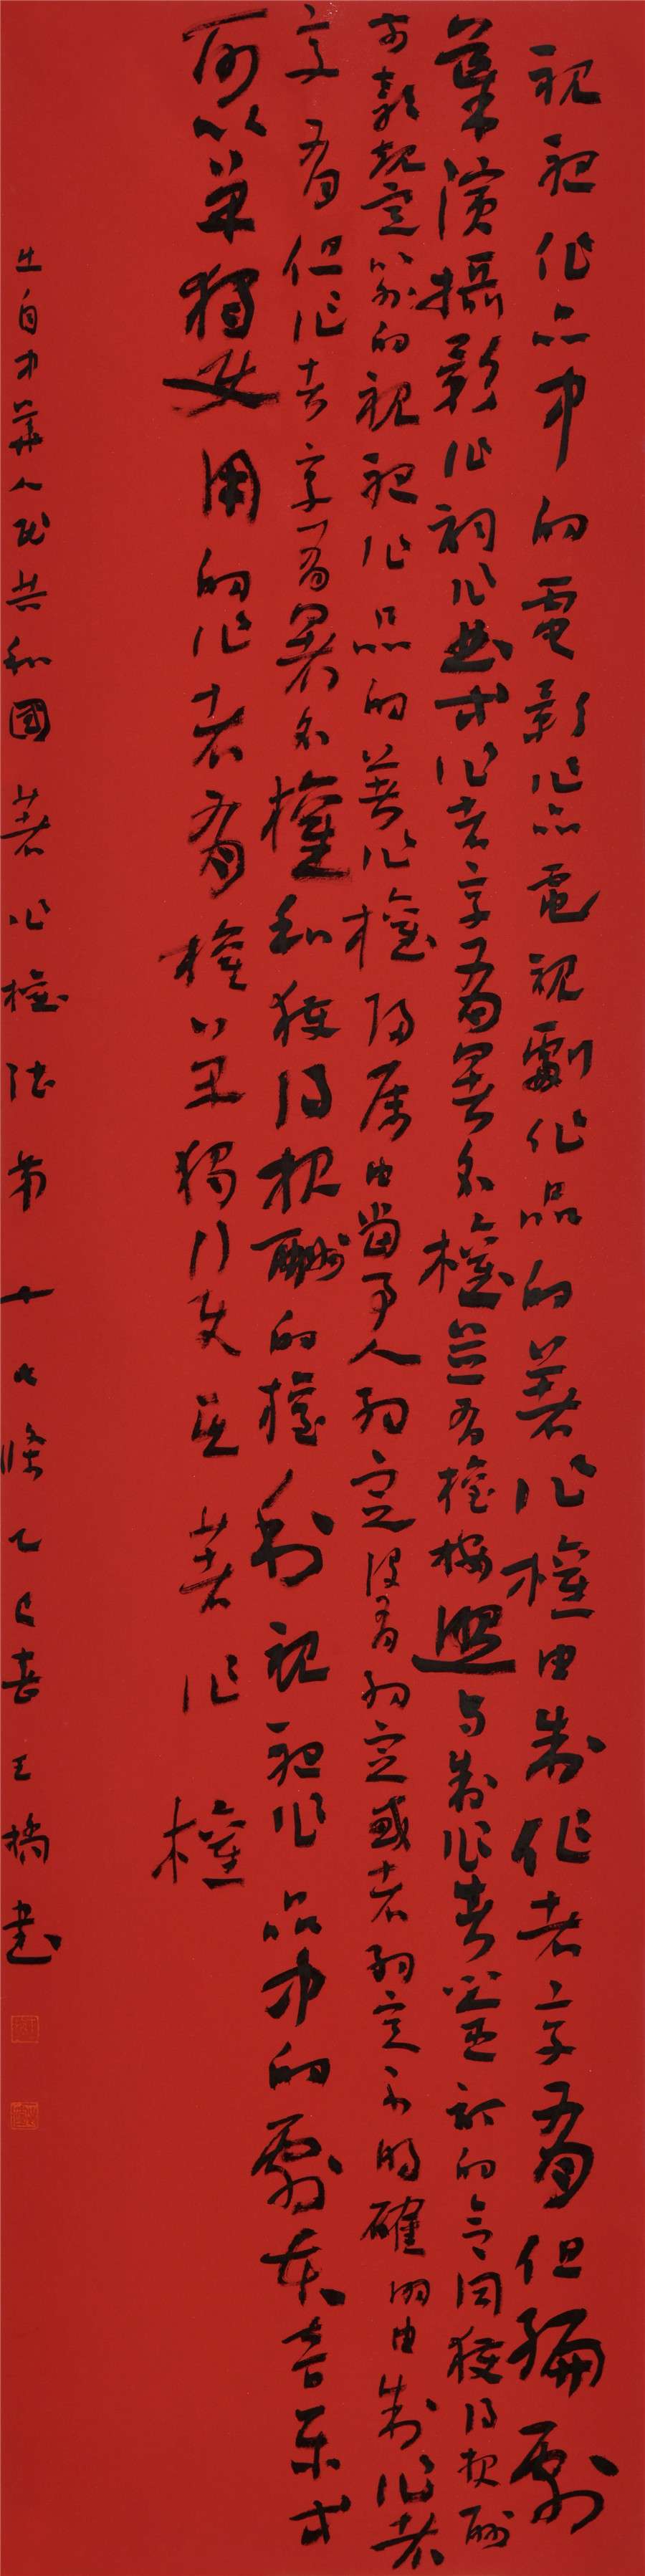 視聽作品中的電影作品電視劇作品的著作權由制作者享有但編劇
導演攝影作詞作曲等作者享有署名權並有權按照與制作者簽訂的合同獲得報酬
前款規定以外的視聽作品的著作權歸屬由當事人約定沒有約定或者約定不明確的由制作者
享有但作者享有署名權和獲得報酬的權利視聽作品中的劇本音樂等
可以單獨使用的作者有權單獨行使其著作權
出自中華人民共和國著作權法第十七條乙巳春王橋書